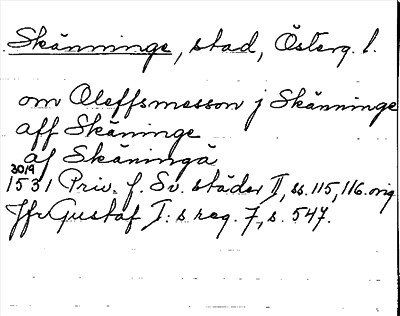 Skänninge, stad, Österg. l.
om Oleffsmesson j Skänninge
aff Skäninge
af Skäningä
30/9
1531 Priv. f. Sv. städer II, ss. 115, 116. orig
Jfr Gustaf I:s reg. 7, s. 547.